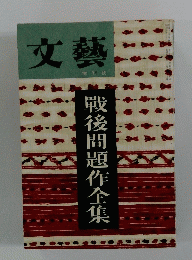 文藝
戰後問題作全集